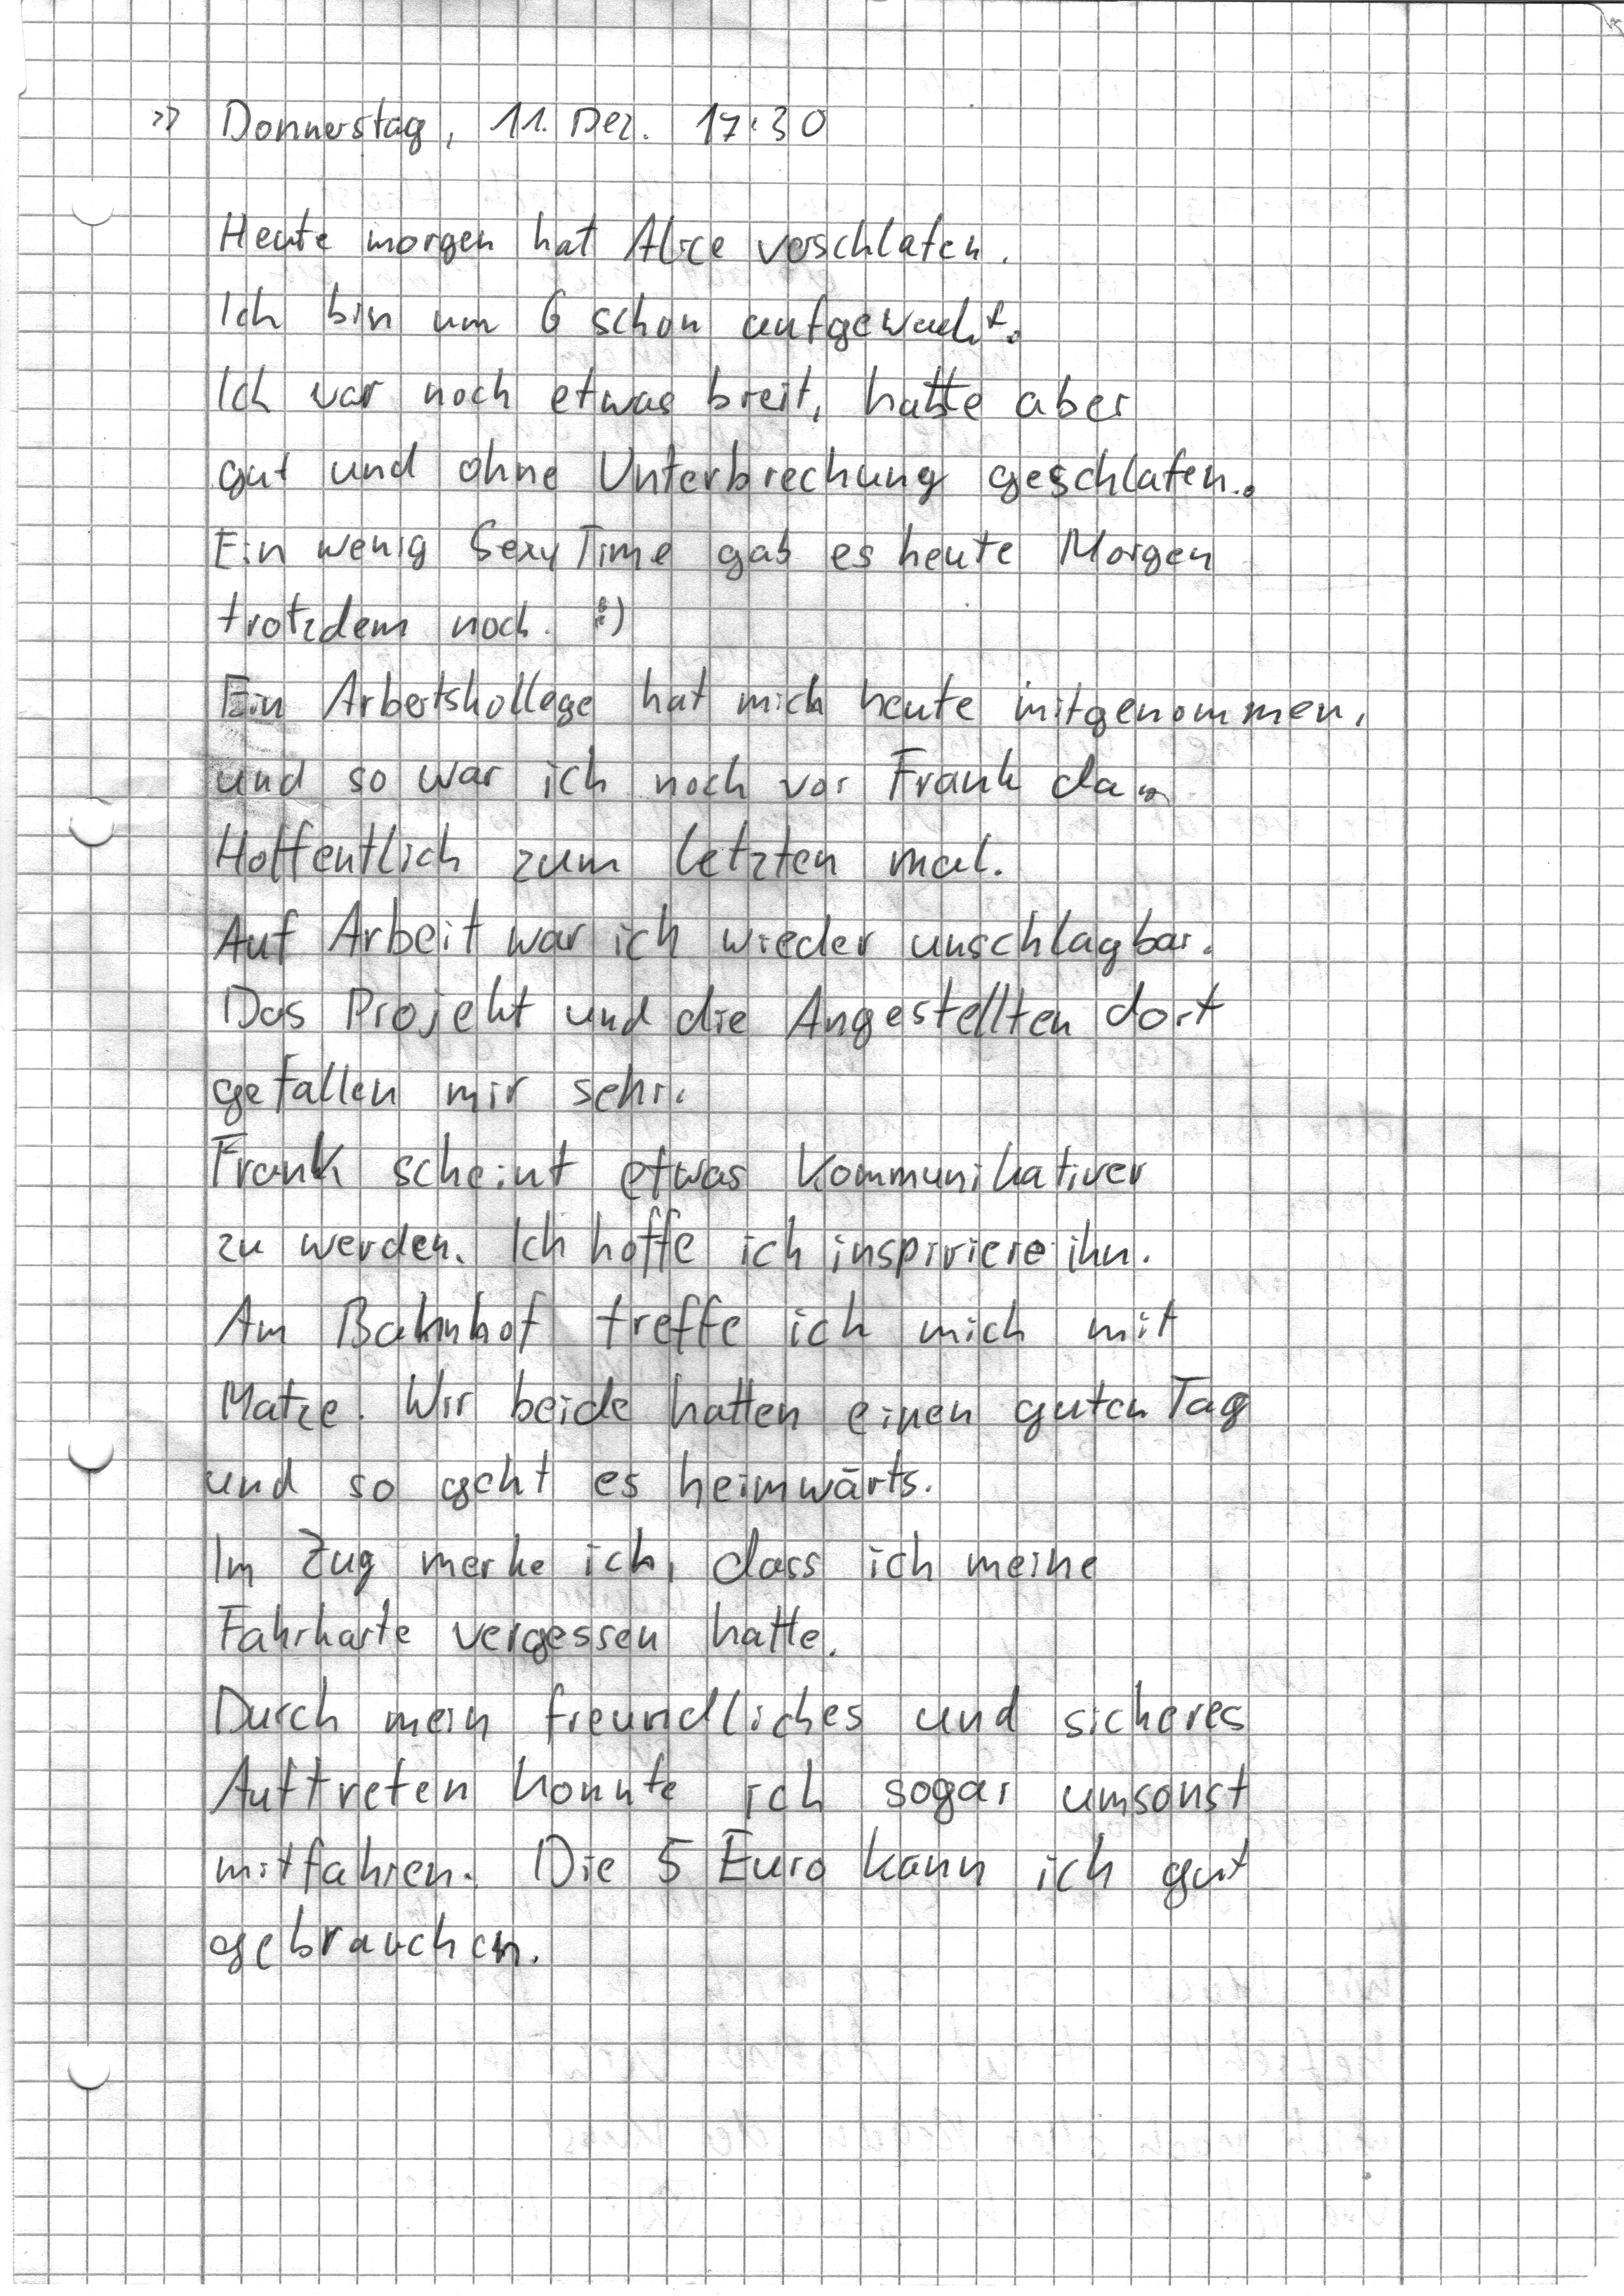 >> Donnerstag, 11. Dez. 17:30
Heute morgen hat Alice verschlafen.
Ich bin um 6 schon aufgewacht.
Ich war noch etwas breit, hatte aber
gut und ohne Unterbrechung geschlafen.
Ein wenig Sexy Time gab es heute Morgen
trotzdem noch. :)
Ein Arbeitskollege hat mich heute mitgenommen,
und so war ich noch vor Frank da.
Hoffentlich zum letzten mal.
Auf Arbeit war ich wieder unschlagbar.
Das Projekt und die Angestellten dort
gefallen mir sehr.
Frank scheint etwas Kommunikativer
zu werden. Ich hoffe ich inspiriere ihn.
Am Bahnhof treffe ich mich mit
Matze. Wir beide hatten einen guten Tag
und so geht es heimwärts.
Im Zug merke ich, dass ich meine
Fahrkarte vergessen hatte.
Durch mein freundliches und sicheres
Auftreten konnte ich sogar umsonst
mitfahren. Die 5 Euro kann ich gut
gebrauchen.